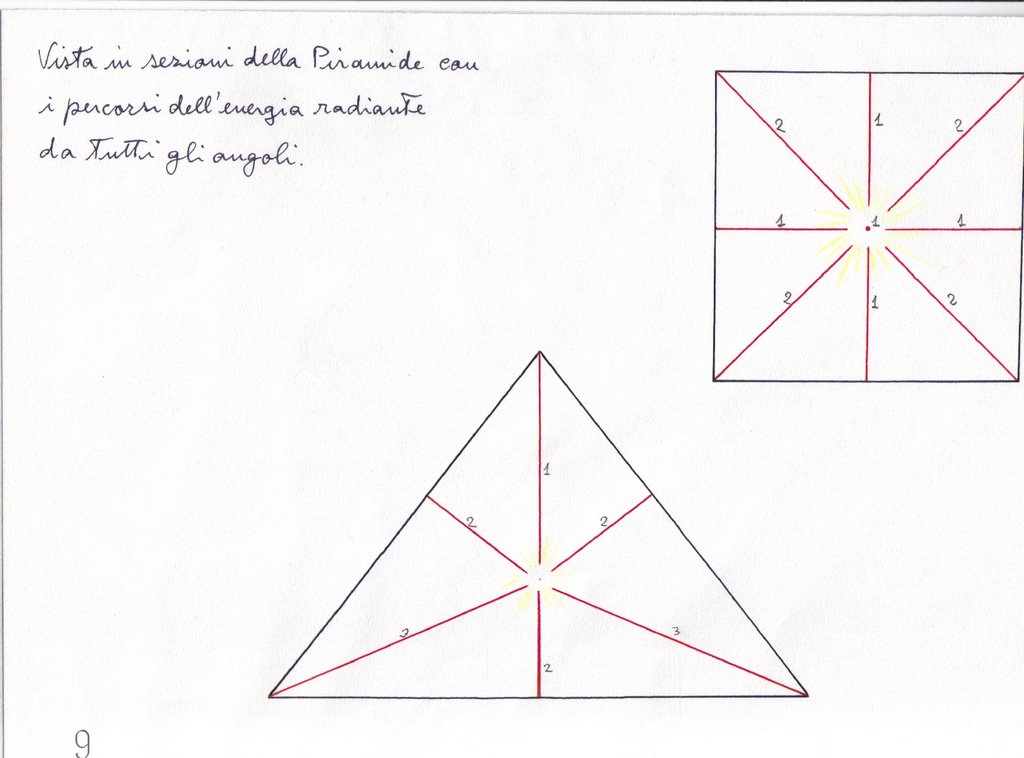 Vista in sezioni della Piramide con
i percorsi dell'energia radiante
da tutti gli angoli.
2
1
2
1
1
1
2
1
2
1
2
2
3
3
2
9